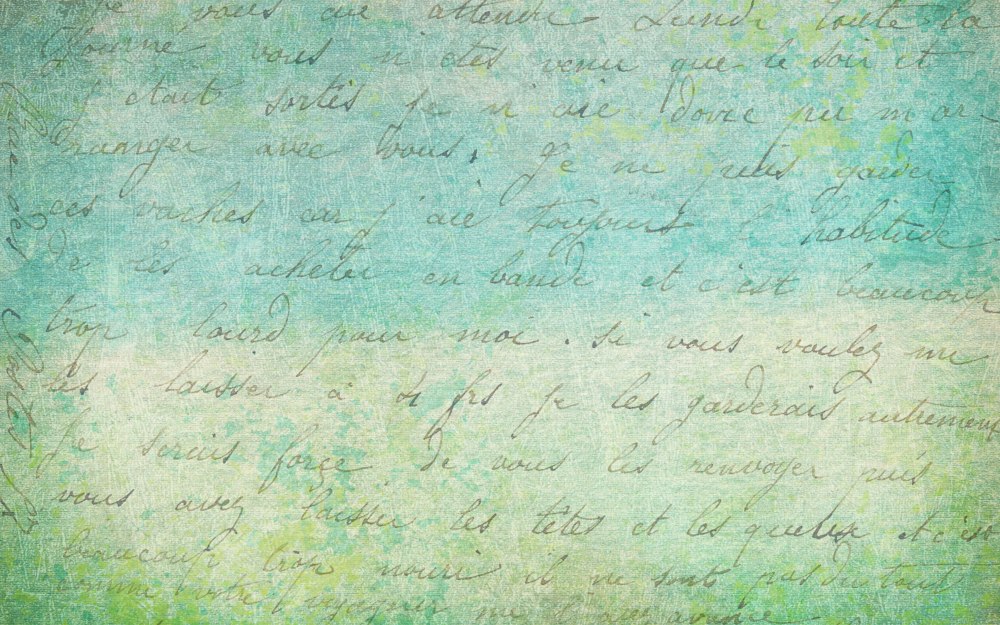 Je vous ai attendu Lundi toute la
Journé vous n'etes venu que le soir et
J'etait sortis je n'aie donc pu m'ar-
ranger avec vous. Je ne puis garder
ces vaches car j'aie toujours l'habitude
de les acheter en bande et c'est beaucoup
trop lourd pour moi. Si vous voulez me
les laisser à 41 frs je les garderais autrement
Je serais forçe de vous les renvoyer puis
vous avez laisser les têtes et les queux et c'est
beaucoup trop nouri il ne sont pas du tout
comme votre me l'avez avance